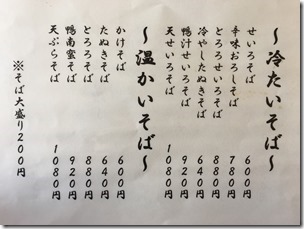 ～冷たいそば～
せいろそば 600円
辛味おろしそば 780円
とろろせいろそば 880円
冷やしたぬきそば 640円
鴨汁せいろそば 920円
天せいろそば 1080円
～温かいそば～
かけそば 600円
たぬきそば 640円
とろろそば 880円
鴨南蛮そば 920円
天ぷらそば 1080円
※そば大盛り200円